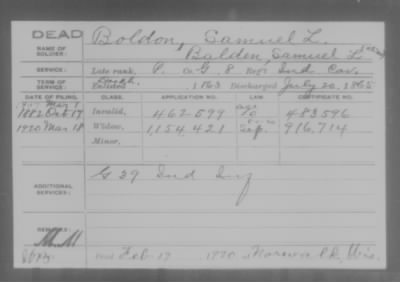 DEAD
NAME OF SOLDIER: Boldon, Samuel L.
Balden, Samuel L
SERVICE: Late rank, P. Co. G, 8 Reg't Ind Cav.
TERM OF SERVICE: Enlisted 1863 Discharged July 20, 1865
DATE OF FILING. CLASS. APPLICATION NO. LAW. CERTIFICATE NO.
1882 Oct 17 Invalid, 462-599 483596
1920 Mar 18 Widow, 1,154,421 916,714
Minor,
ADDITIONAL SERVICES: G 39 Ind Inf
REMARKS:
Died Feb 17, 1920, Norwalk, Wis.